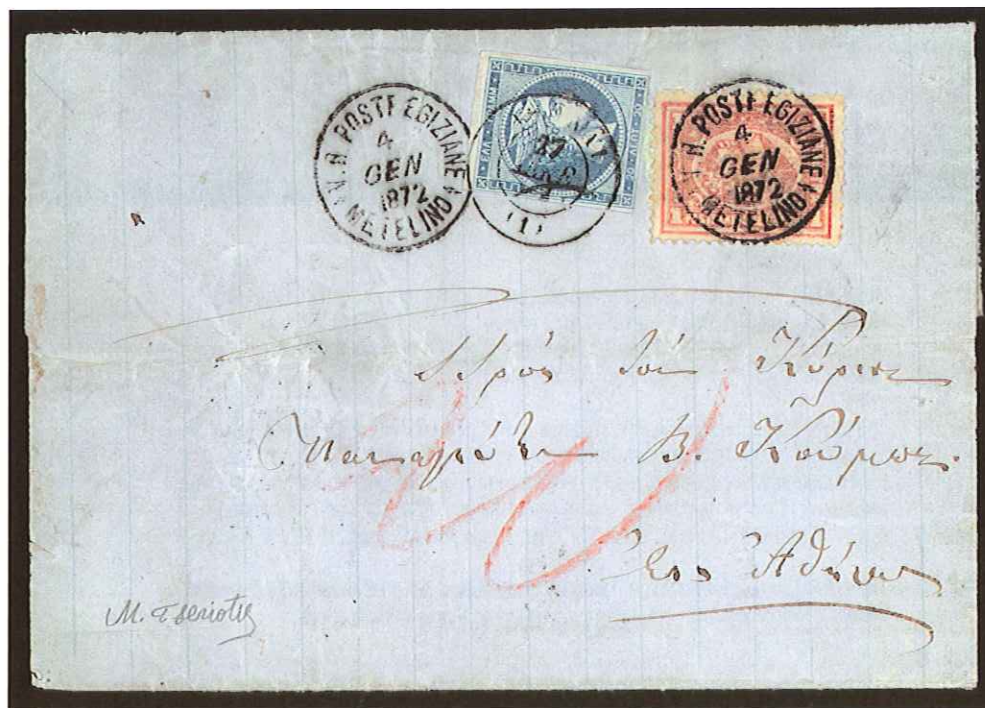 V. R. POSTE EGIZIANE
4
GEN
1872
METELINO
ΕΛΛ
20
27
(1)
V. R. POSTE EGIZIANE
4
GEN
1872
METELINO
Πρός τόν Κύριον
Παναγιώτην Β. Κούμπαν.
Εἰς Ἀθήνας
20